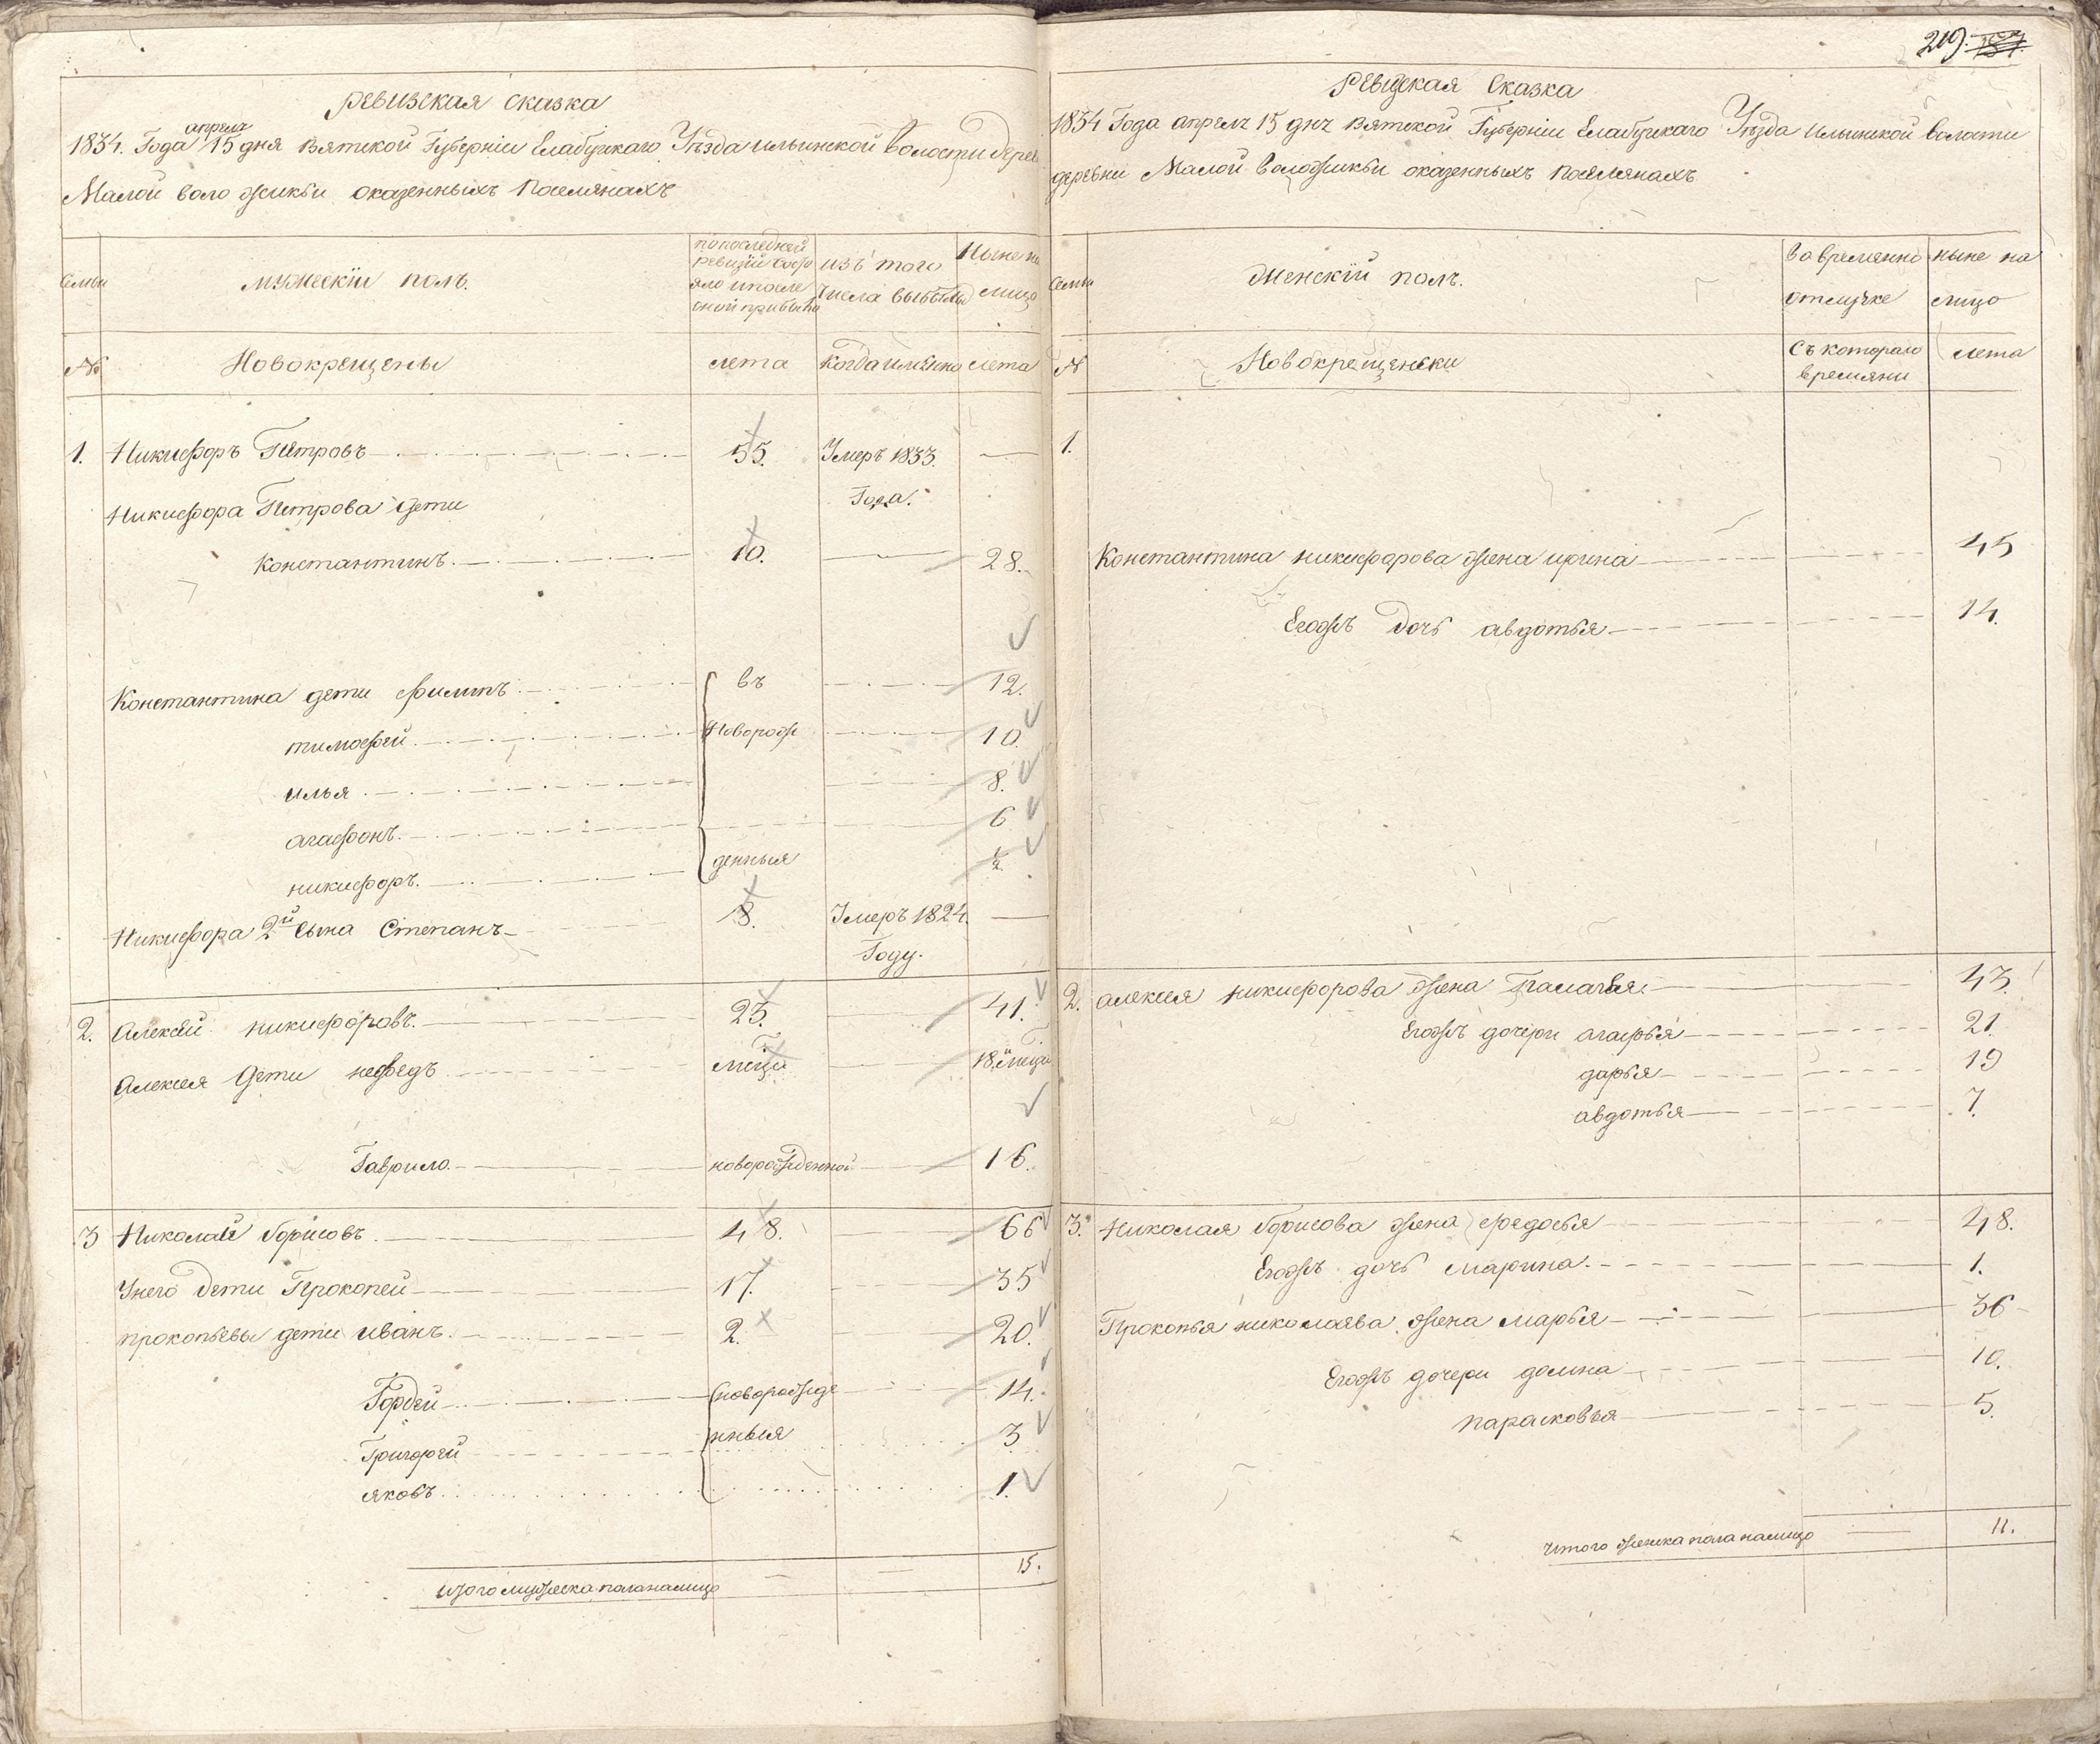 ревизская сказка
апреля
1834. Года 15 дня вятской Губернiи Елабужкаго Уѣзда ильинской волости дерев
Малой воложикьи оказенныхъ поселянахъ
семьи
мужескïй полъ.
попоследней
ревизiи состо
яло ипосле
оной прибыло
изъ того
числа выбыло
Ныне на
лицо
№
Новокрещены
лета
когда имянно
лета
1. Никифоръ Петровъ 55. Умеръ 1833. Года.
Никифора Петрова дети
константинъ. 10. 28.
Константина дети филипъ въ 12.
тимофей новорож 10.
илья 8.
агафонъ 6
никифоръ. денныя 1/2
Никифора 2й сына Степанъ 8. Умеръ 1824. Году.
2. Алексей никифоровъ. 23. 41.
Алексея дети нефедъ мѣца 18.
Гаврило новорожденной 16.
3 Николай борисовъ. 48. 66
Унего дети Прокопей 17. 35
прокопьевы дети иванъ. 2. 20.
Гордей новорожде 14.
Григорей нныя 3
яковъ 1.
итого мужеска пола налицо 15.
219. 
Ревизская Сказка
1834 Года апреля 15 дня вятской Губернiи Елабужкаго Уѣзда ильинской волости
деревни Малой воложикьи оказенныхъ поселянахъ
семьи
женскïй полъ.
вовремянно
отлучке
ныне на
лицо
№
Новокрещенски
съ котораго
времяни
лета
1.
Константина никифорова жена ирина 45
Егожъ дочь авдотья 14.
2. алексея никифорова жена Палагея. 43.
Егожъ дочери агафья 21.
дарья 19
авдотья 7.
3. Николая борисова жена федосья 48.
Егожъ дочь марина. 1.
Прокопья николаева жена марья 36
Егожъ дочери домна 10.
парасковья 5.
итого женска пола налицо 11.